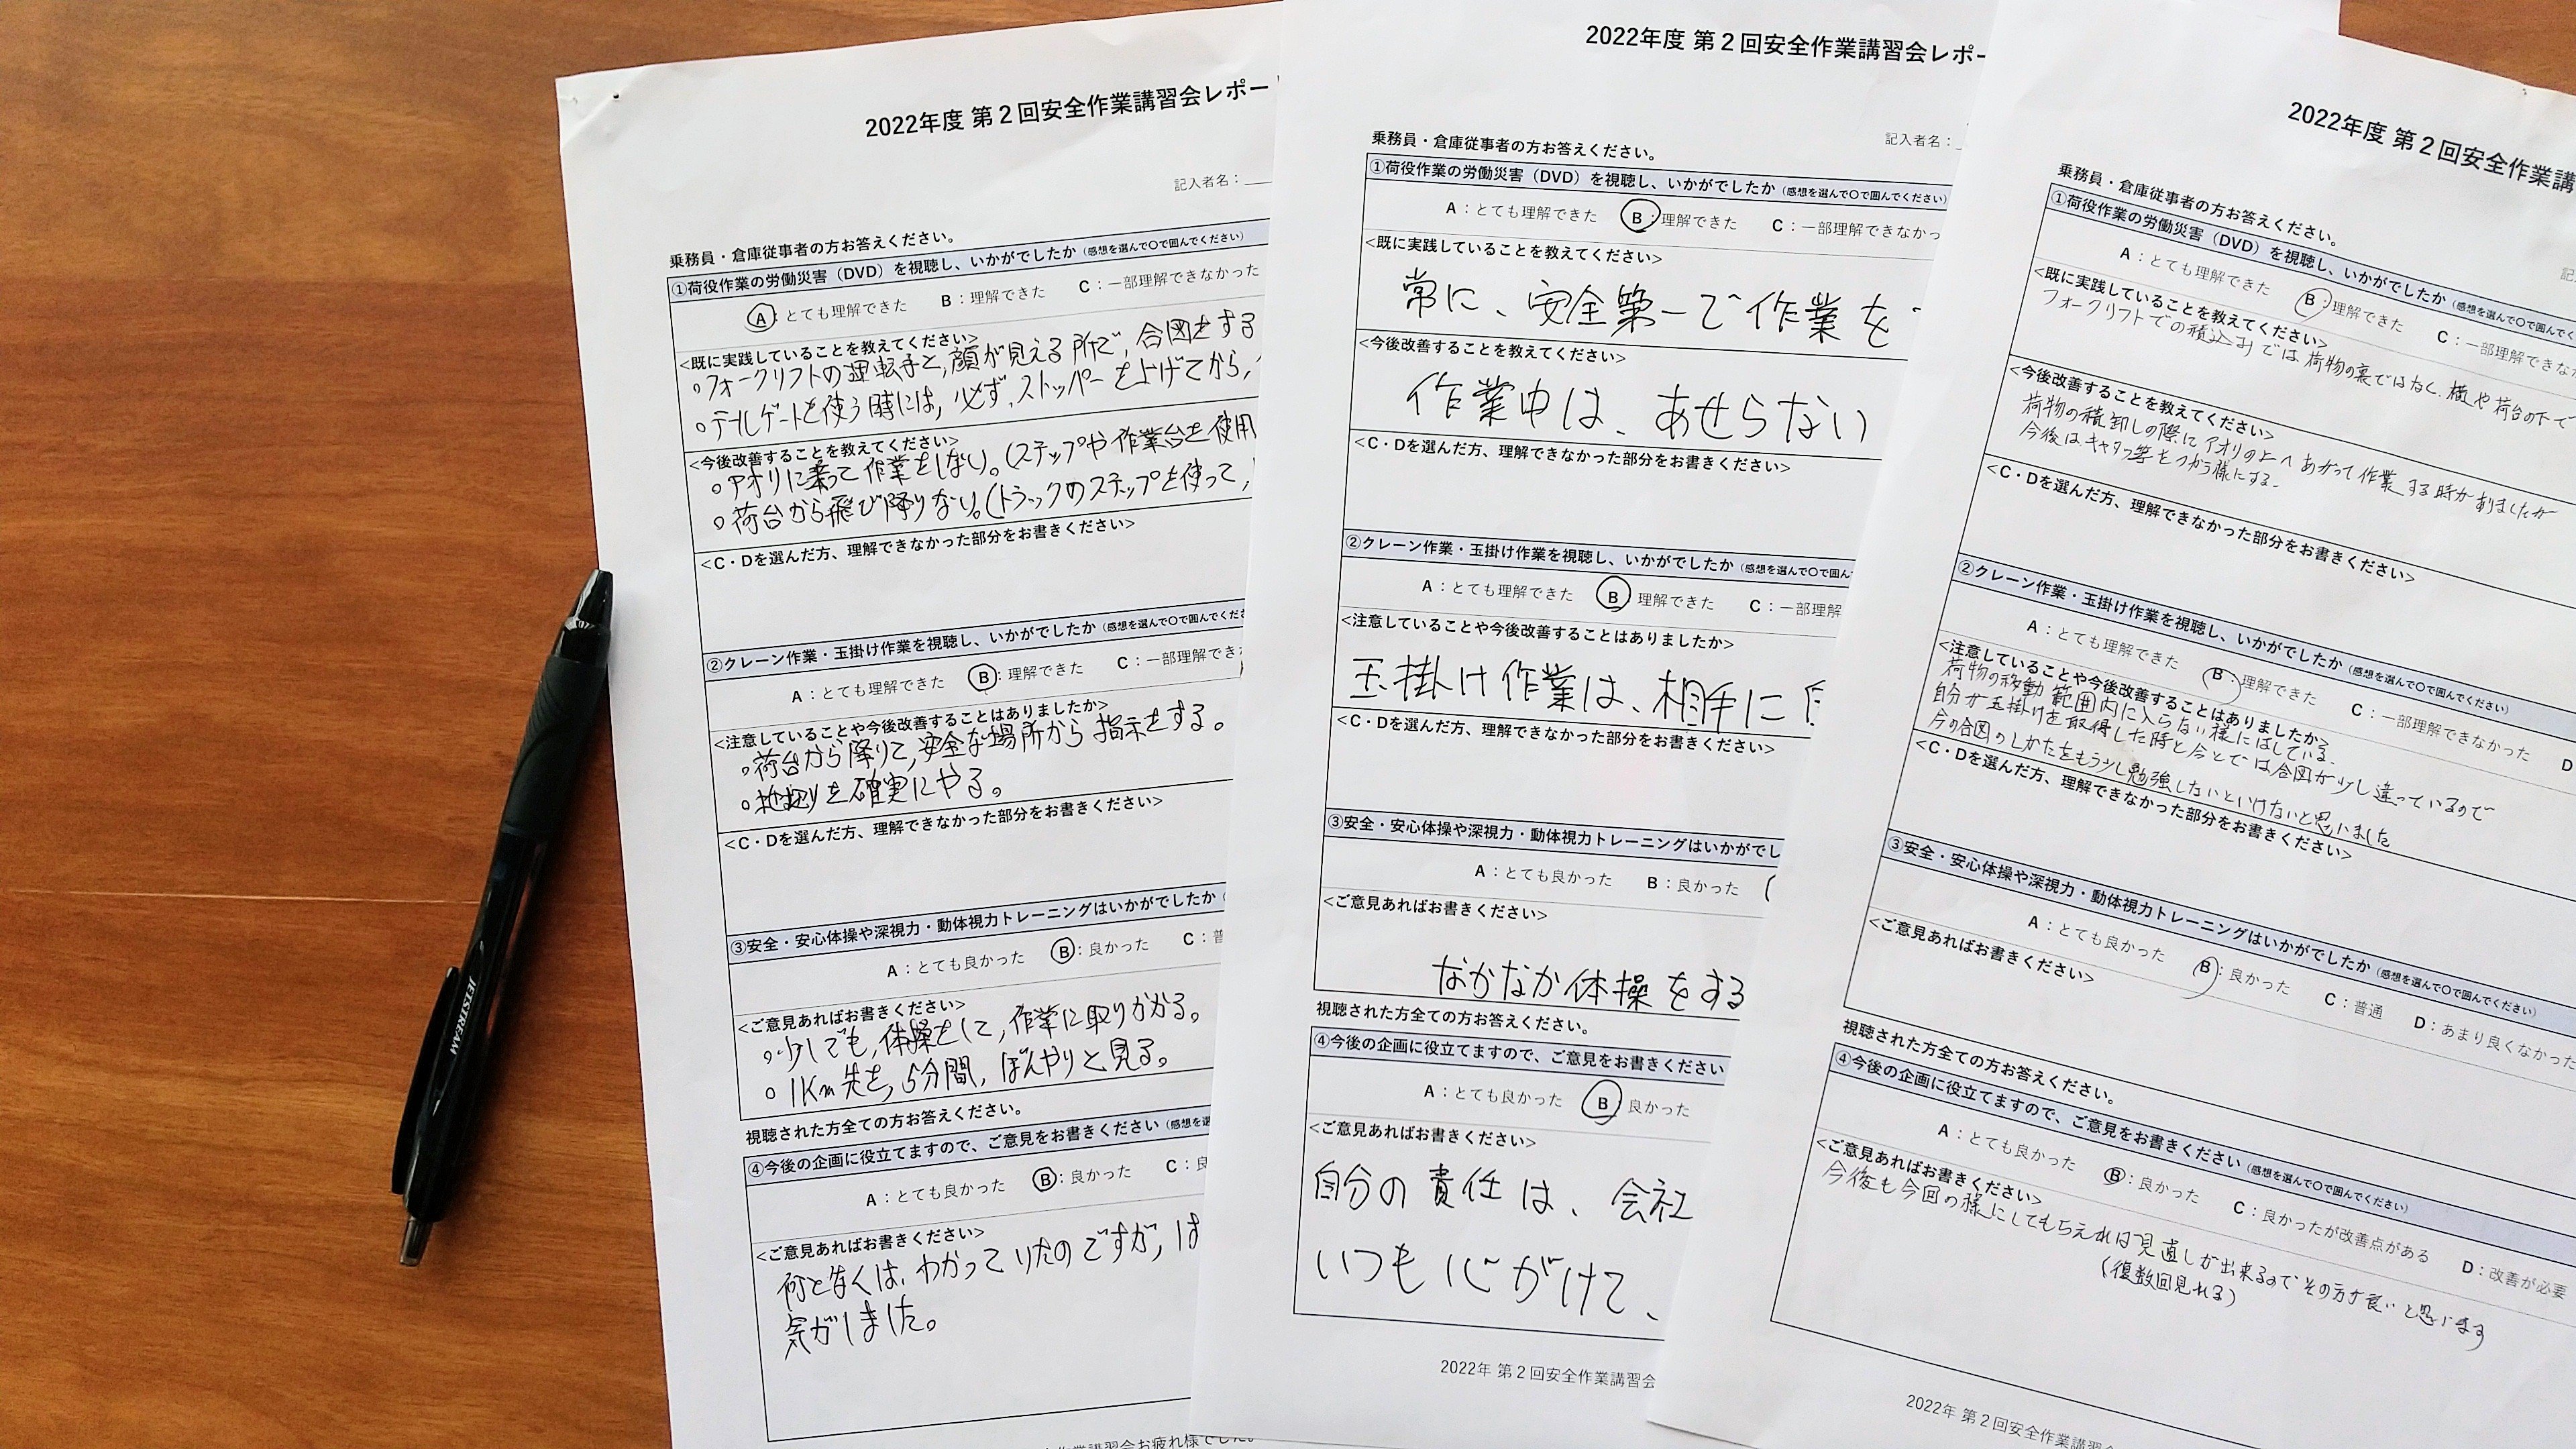 2022年度 第２回安全作業講習会レポー
記入者名：
乗務員・倉庫従事者の方お答えください。
①荷役作業の労働災害（DVD）を視聴し、いかがでしたか（感想を選んで〇で囲んでください）
A：とても理解できた B：理解できた C：一部理解できなかった
<既に実践していることを教えてください>
○フォークリフトの運転手と,顔が見える所で,合図をする
○テールゲートを使う時には,必ず,ストッパーを上げてから,
<今後改善することを教えてください>
○アオリに乗って作業をしない。(ステップや作業台を使用
○荷台から飛び降りない。(トラックのステップを使って,
<C・Dを選んだ方、理解できなかった部分をお書きください>
②クレーン作業・玉掛け作業を視聴し、いかがでしたか（感想を選んで〇で囲んでくだ
A：とても理解できた B：理解できた C：一部理解でき
<注意していることや今後改善することはありましたか>
○荷台から降りて,安全な場所から指示をする。
○地切りを確実にやる。
<C・Dを選んだ方、理解できなかった部分をお書きください>
③安全・安心体操や深視力・動体視力トレーニングはいかがでしたか（
A：とても良かった B：良かった C：普
<ご意見あればお書きください>
○少しでも,体操をして,作業に取りかかる。
○1Km先を,5分間,ぼんやりと見る。
視聴された方全ての方お答えください。
④今後の企画に役立てますので、ご意見をお書きください（感想を選
A：とても良かった B：良かった C：良
<ご意見あればお書きください>
何となくは、わかっていたのですが,は
気がしました。
作業講習会お疲れ様でした。
2022年度 第２回安全作業講習会レポー
記入者名：
乗務員・倉庫従事者の方お答えください。
①荷役作業の労働災害（DVD）を視聴し、いかがでしたか（感想を選んで〇で囲んでください）
A：とても理解できた B：理解できた C：一部理解できなかっ
<既に実践していることを教えてください>
常に、安全第一で作業を
<今後改善することを教えてください>
作業中は、あせらない
<C・Dを選んだ方、理解できなかった部分をお書きください>
②クレーン作業・玉掛け作業を視聴し、いかがでしたか（感想を選んで〇で囲ん
A：とても理解できた B 理解できた C：一部理解
<注意していることや今後改善することはありましたか>
玉掛け作業は、相手に
<C・Dを選んだ方、理解できなかった部分をお書きください>
③安全・安心体操や深視力・動体視力トレーニングはいかがでし
A：とても良かった B：良かった
<ご意見あればお書きください>
なかなか体操をする
視聴された方全ての方お答えください。
④今後の企画に役立てますので、ご意見をお書きください
A：とても良かった B 良かった
<ご意見あればお書きください>
自分の責任は、会社
いつも心がけて、
2022年 第２回安全作業講習会
2022年度 第２回安全作業講
記
乗務員・倉庫従事者の方お答えください。
①荷役作業の労働災害（DVD）を視聴し、いかがでしたか（感想を選んで〇で囲んでく
A：とても理解できた B：理解できた C：一部理解できな
<既に実践していることを教えてください>
フォークリフトでの積込みでは荷物の裏ではなく、横や荷台の下で
<今後改善することを教えてください>
荷物の積卸しの際にアオリの上へあがって作業する時がありましたが
今後はキャタツ等をつかう様にする。
<C・Dを選んだ方、理解できなかった部分をお書きください>
②クレーン作業・玉掛け作業を視聴し、いかがでしたか（感想を選んで〇で囲んでください）
A：とても理解できた B：理解できた C：一部理解できなかった D
<注意していることや今後改善することはありましたか>
荷物の移動範囲内に入らない様にはしている。
自分が玉掛けを取得した時と今とでは合図が少し違っているので
今の合図のしかたをもう少し勉強しないといけないと思いました
<C・Dを選んだ方、理解できなかった部分をお書きください>
③安全・安心体操や深視力・動体視力トレーニングはいかがでしたか（感想を選んで〇で囲んでください）
A：とても良かった B：良かった C：普通 D：あまり良くなかった
<ご意見あればお書きください>
視聴された方全ての方お答えください。
④今後の企画に役立てますので、ご意見をお書きください（感想を選んで〇で囲んでください）
A：とても良かった B：良かった C：良かったが改善点がある D：改善が必要
<ご意見あればお書きください>
今後も今回の様にしてもらえれば見直しが出来るのでその方が良いと思います
(復数回見れる)
2022年 第２回安全作業講習会
JETSTREAM